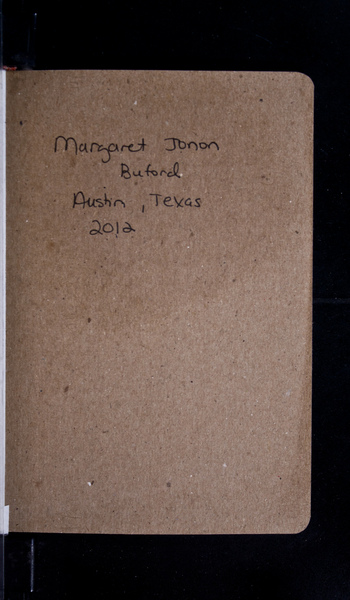 Margaret Jonon
Buford
Austin, Texas
2012